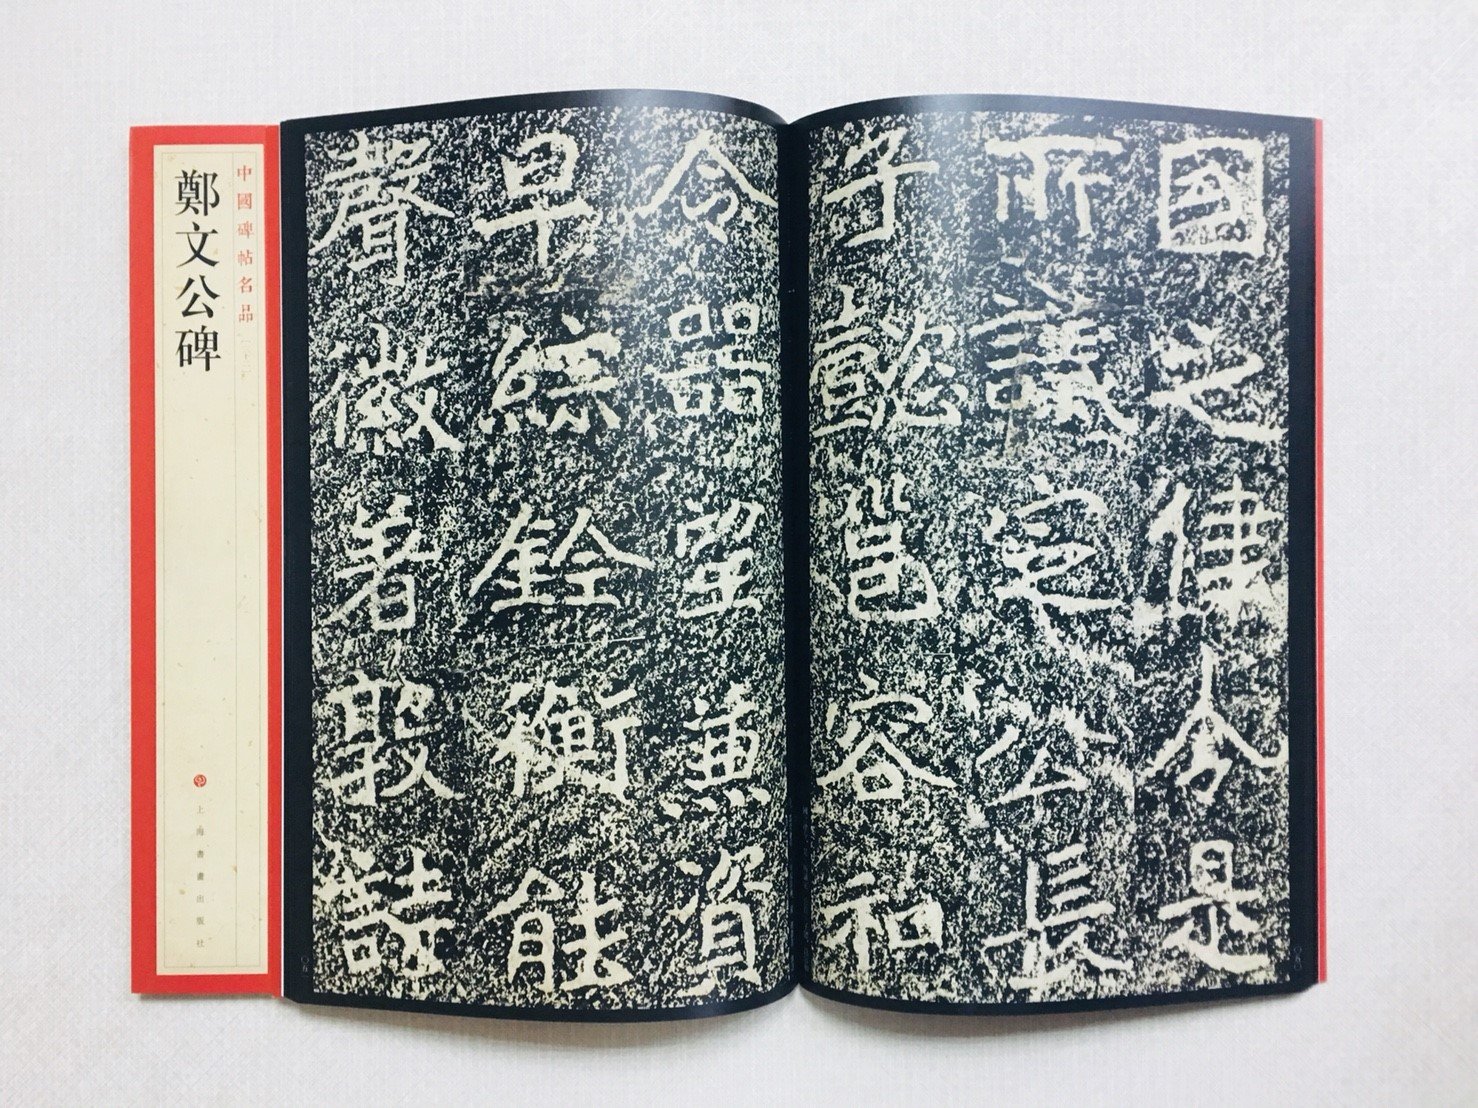 國之律令是
所議定公長
子懿邕容和
令器望兼資
早綜銓衡能
聲徽著敦詩
中國碑帖名品
鄭文公碑
上海書畫出版社